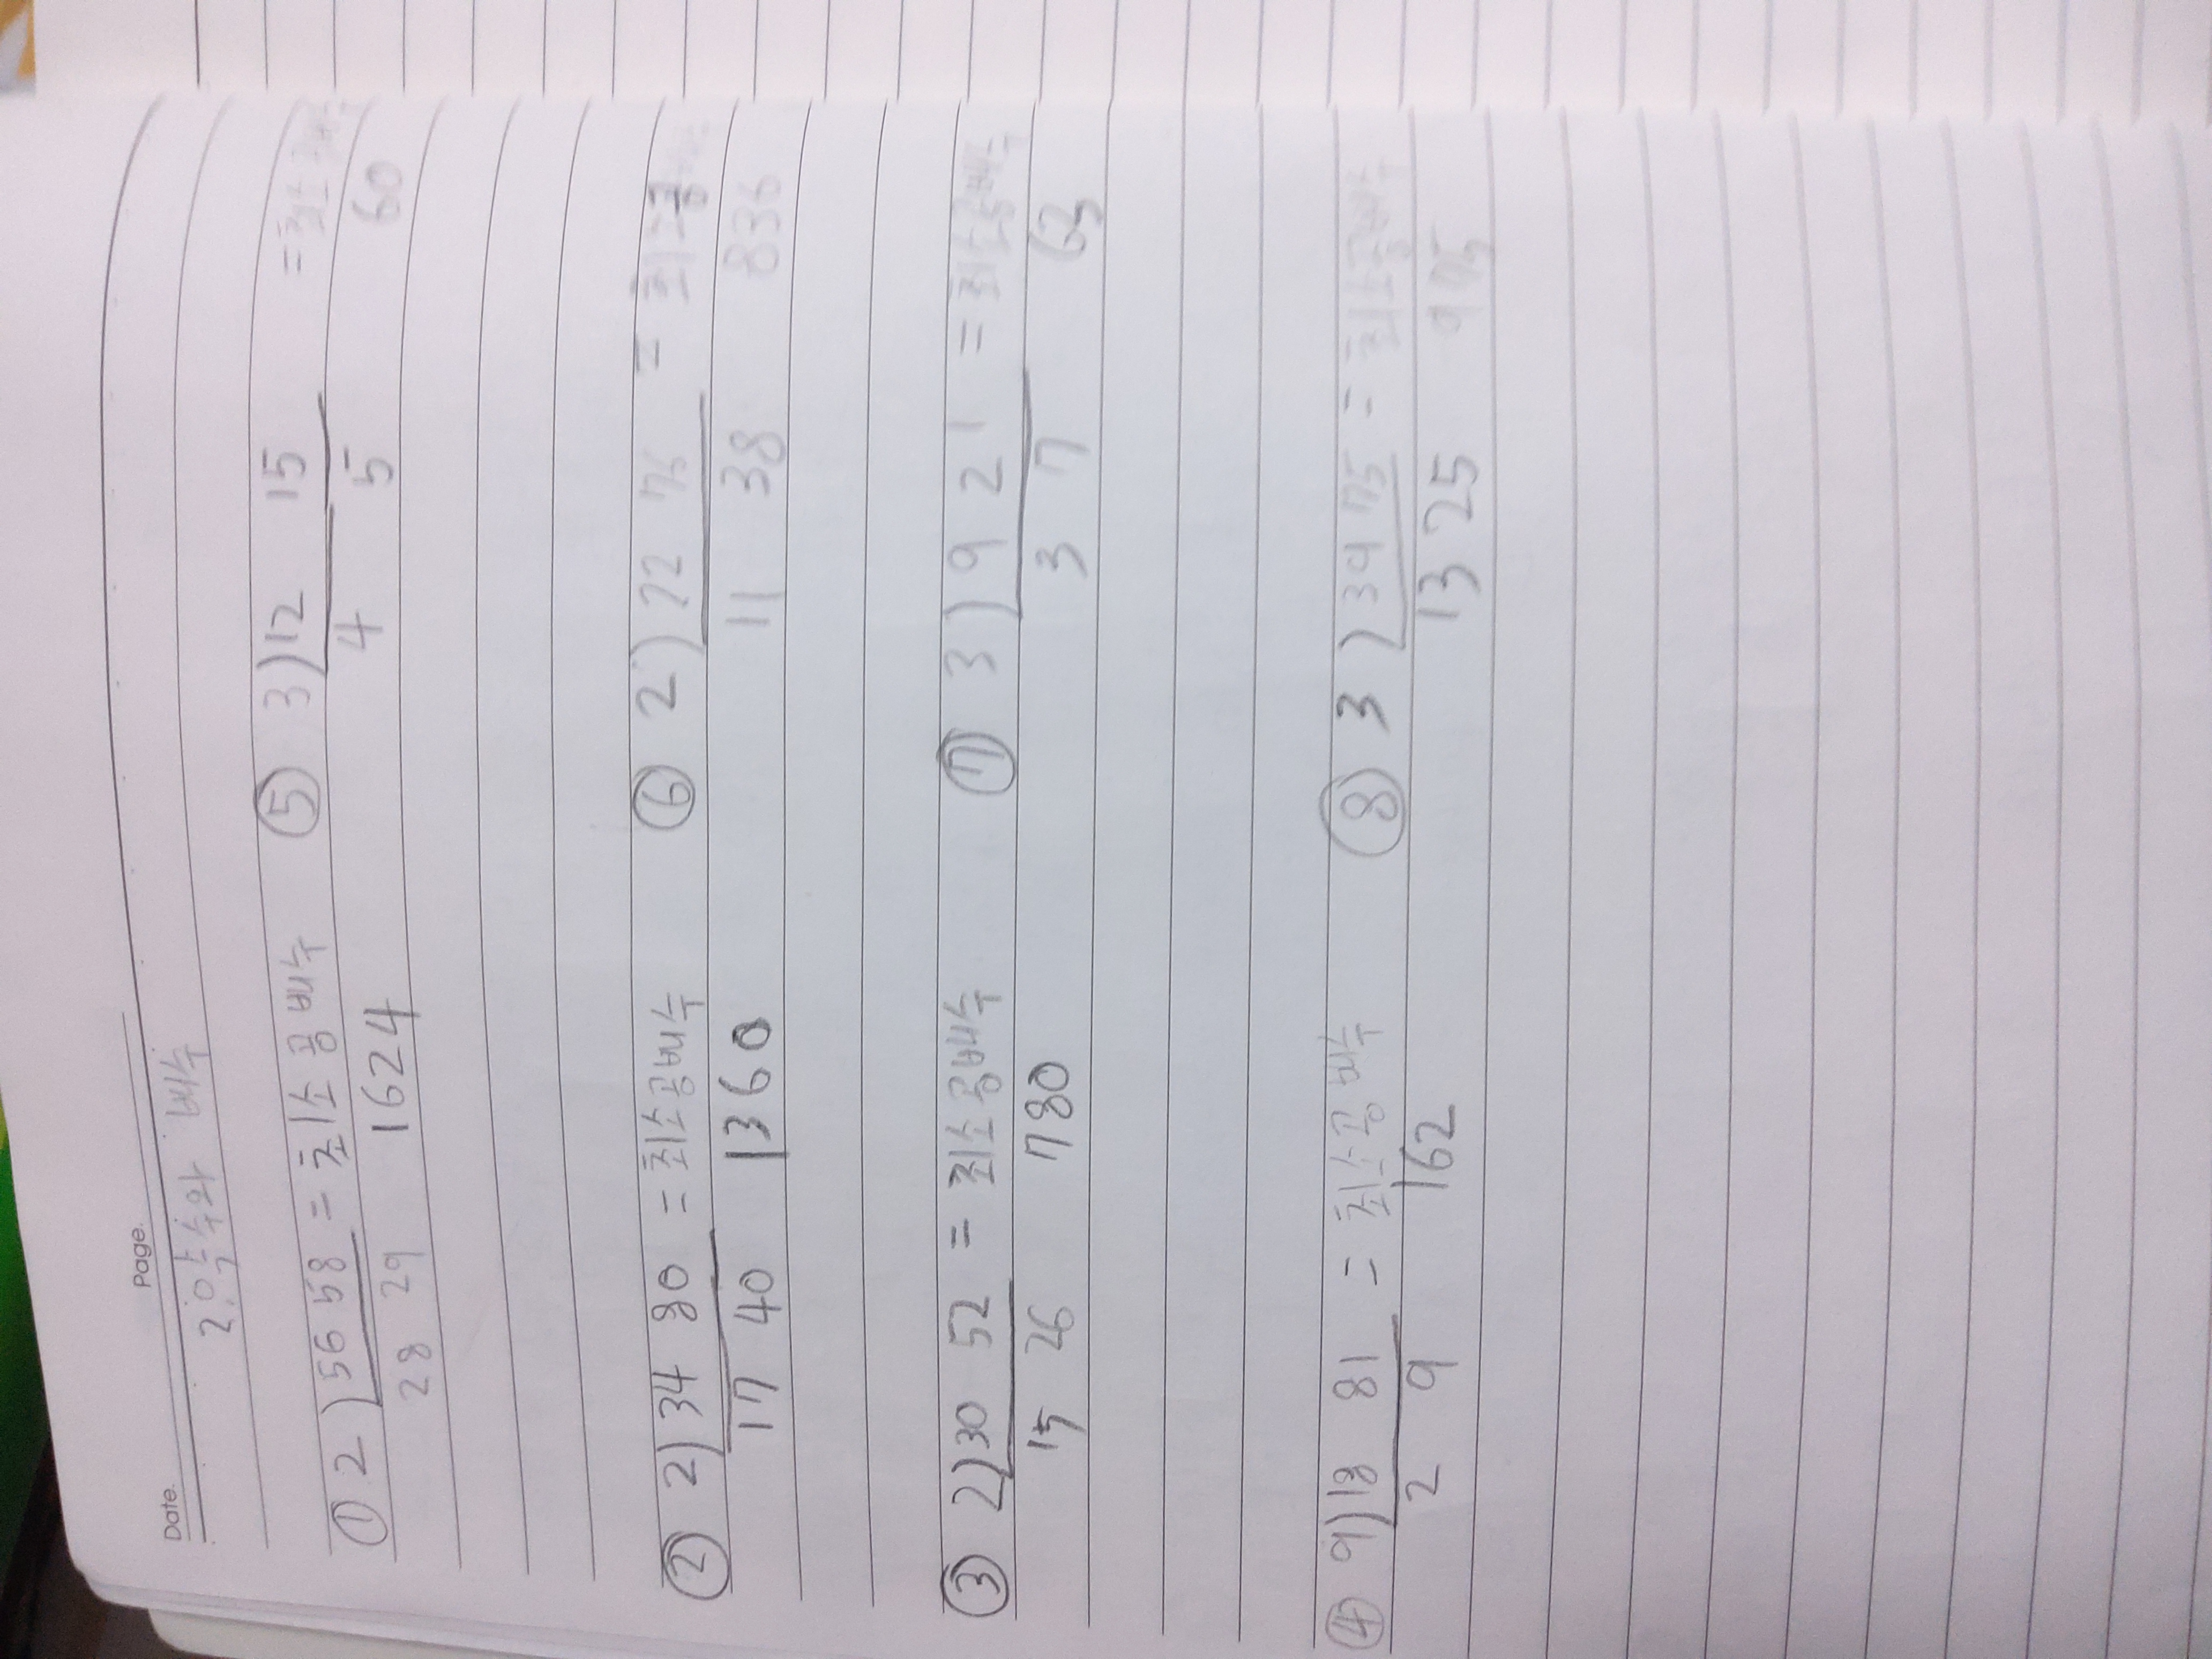 Date. Page.
2. 약수와 배수
① 2)56 58 = 최소공배수
28 29 1624
② 2)34 80 = 최소공배수
17 40 1360
③ 2)30 52 = 최소공배수
15 26 780
④ 9)18 81 = 최소공배수
2 9 162
⑤ 3)12 15 = 최소공배수
4 5 60
⑥ 2)22 76 = 최소공배수
11 38 836
⑦ 3)9 21 = 최소공배수
3 7 63
⑧ 3)39 75 = 최소공배수
13 25 975